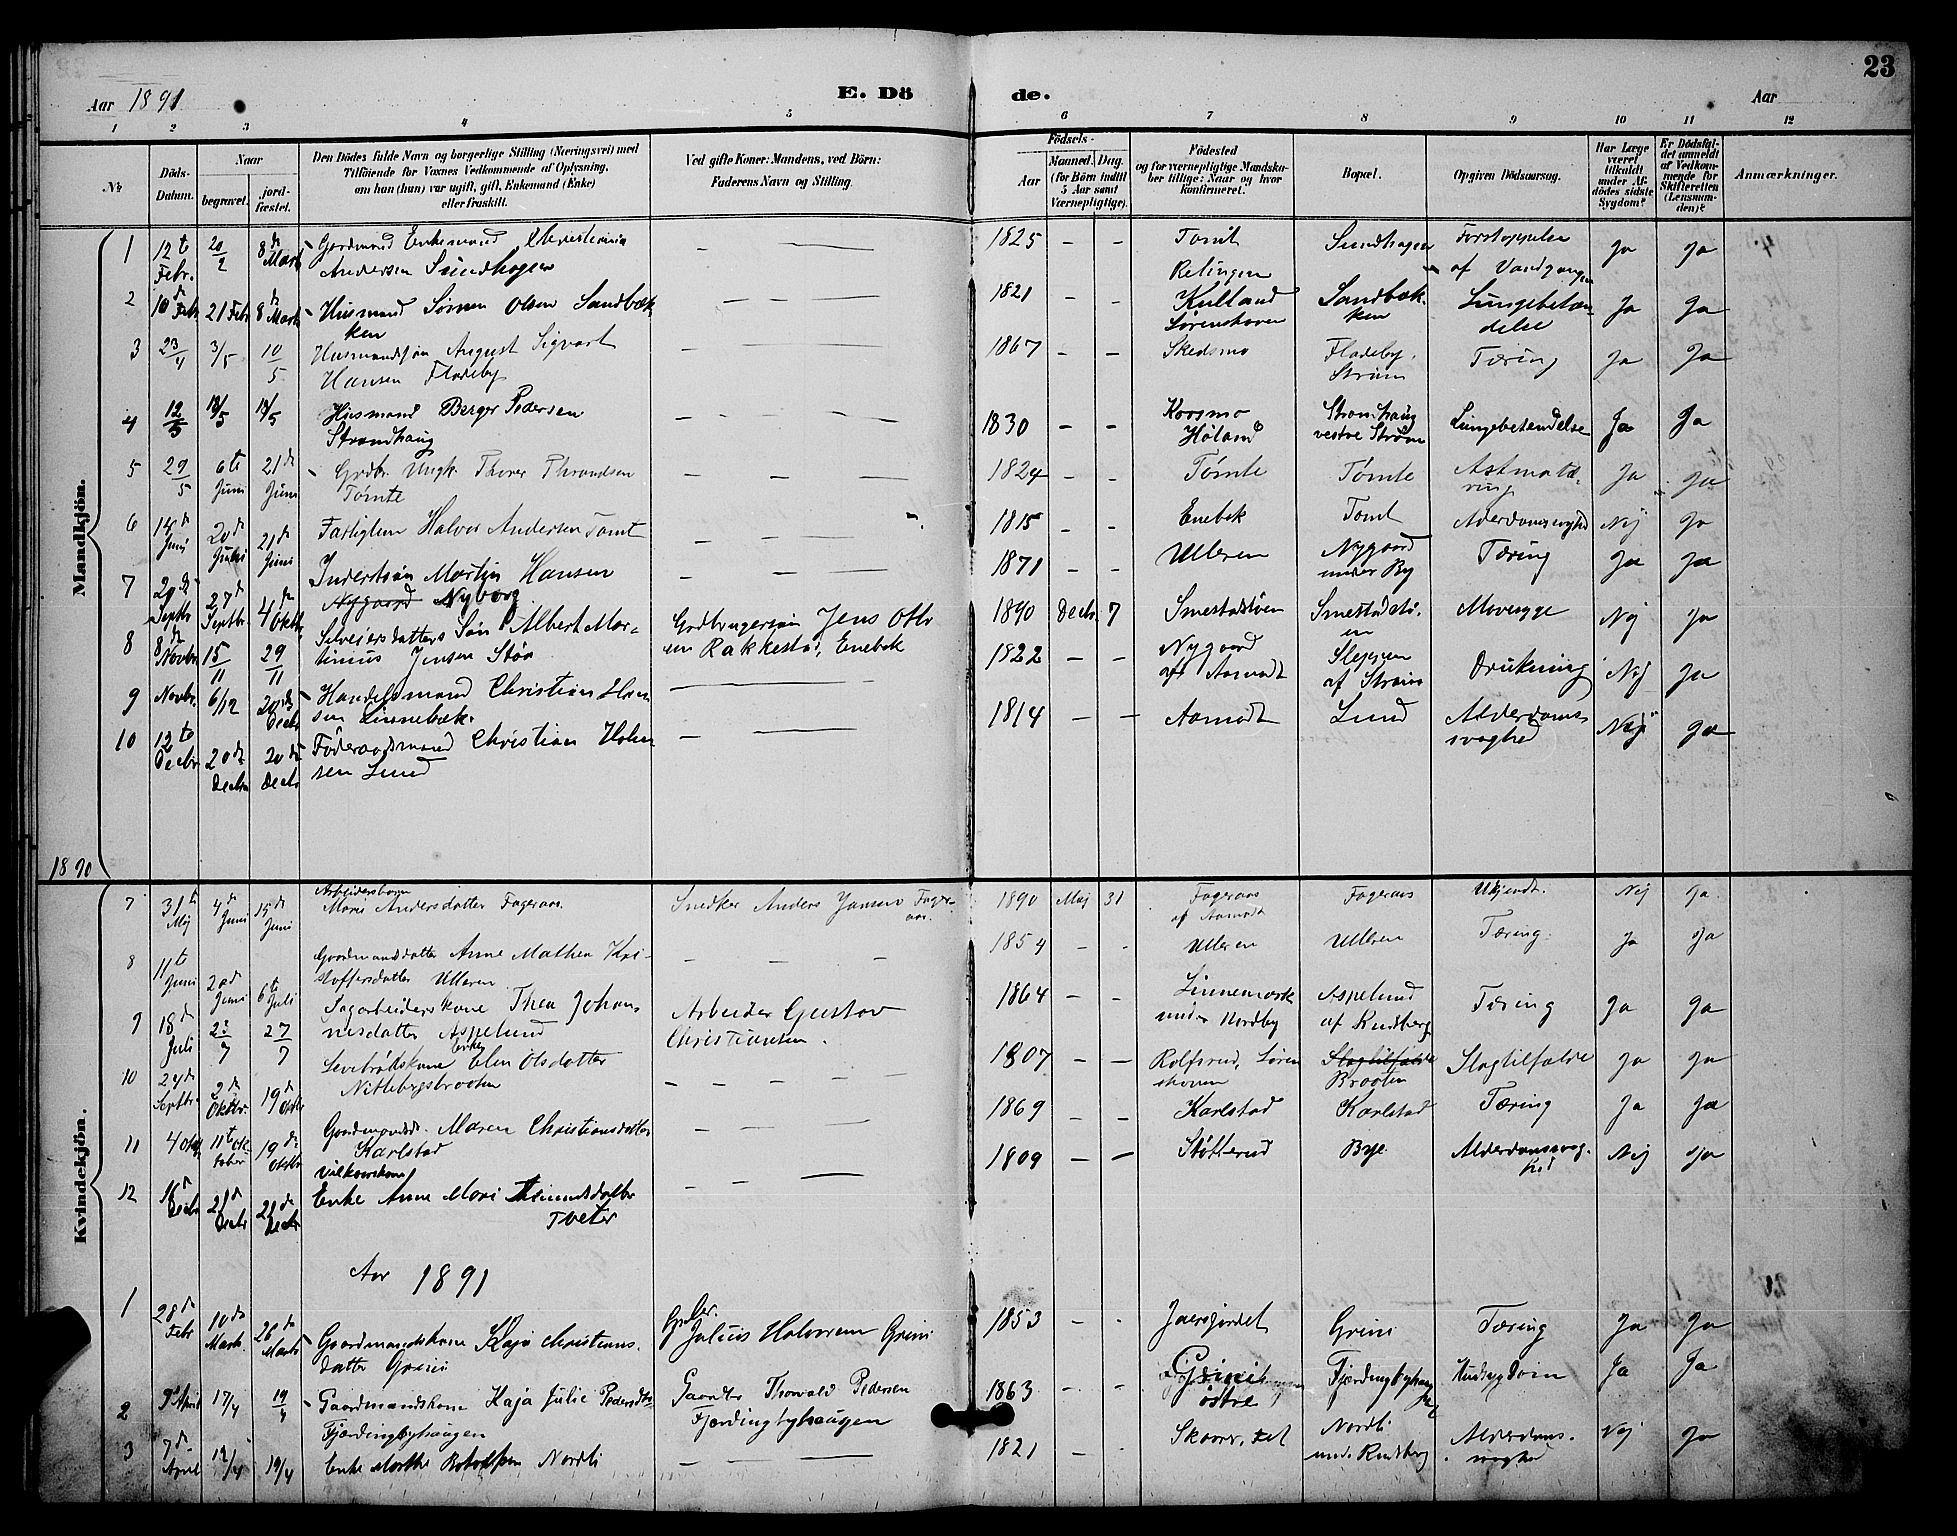 Aar 1891
E. Dö de.
Aar
23
1 2 3 4 5 6 7 8 9 10 11 12
№
Döds-Datum.
Naar
begravet.
jord-fæstet.
Den Dödes fulde Navn og borgerlige Stilling (Næringsvei) med
Tilföiende for Voxnes Vedkommende af Oplysning,
om han (hun) var ugift, gift, Enkemand (Enke)
eller fraskilt.
Ved gifte Koner: Mandens, ved Börn:
Faderens Navn og Stilling.
Födsels-
Aar
Maaned. Dag.
(for Börn indtil
5 Aar samt
Værnepligtige).
Födested
og for værnepligtige Mandska-
ber tillige: Naar og hvor
konfirmeret.
Bopæl.
Opgiven Dödsaarsag.
Har Læge
været
tilkaldt
under Af-
dödes sidste
Sygdom?
Er Dödsfal-
det anmeldt
af Vedkom-
mende for
Skifteretten
(Lensman-
den)?
Anmærkninger.
Mandkjön.
1 12te Febr. 20/2 8de Marts Gordmand Enkemand Christiania Andersen Sundhagen — — 1825 — — Tomt Relingen Sundhagen Forstoppelse af Vandgangen Ja Ja
2 10de Febr 21 Febr 8de Marts Husmand Simen Olsen Sandbækken — — — 1821 — — Kulland Sørenshoven Sandbækken Lungebetændelse Ja Ja
3 23/4 3/5 10/5 Husmandssøn August Sigvart Hansen Fladeby — — — 1867 — — Skedsmo Fladeby, Strøm Tæring Ja Ja
4 12/5 18/5 18/5 Husmand Berger Pedersen Strandhaug — — — 1830 — — Høland Stromhaug vestre Strøm Lungebetendelse Ja Ja
5 29/5 6te Juni 21de Juni Grdbr. Ungk. Thorer Throndsen Tømte — — — 1824 — — Tømte Tømte Ja Ja
6 14de Juni 20de Juni 21de Juni Fattiglem Halvor Andersen Tomt — — — 1815 — — Enebak Tomt Alderdomssvaghed Nej Ja
7 20de Septbr 27de Septbr. 4de Oktbr Inderstsøn Martin Hansen Nygaard Nyborg — — — 1871 — — Ulleren Nygaard under By Tæring Ja Ja
8 8de Novbr. 15/11 29/11 Selveiersdatters Søn Albert Martinius Jensen Støa Grdbrugersøn Jens Ottersen Rakkestad, Enebak 1890 Decbr. 7 Smestadstøen Smestadstøen Mavesyge Nej Ja
9 Novbr. 6/12 20de Decbr Handelsmand Christian Hansen Linnebæk. — — 1822 — — Nygaard af Aamodt af Strøm Drukning Nej Ja
10 12te Decbr 20de Decbr 20de Decbr Føderaadsmand Christian Hansen Lund — — — 1814 — — Aamodt Lund Alderdomssvaghed Nej Ja
1890
Kvindekjön.
7 31te Maj 4de Juni 15de Juni Arbeidersbarn Marie Andersdatter Fageraas Snedker Anders Jansen Fageraas. 1890 Maj 31 Fageraas af Aamodt Fageraas Ukjendt. Nej Ja
8 11te Juni 20de Juni 6te Juli Gaardmandsdatter Anne Mathea Kristoffersdatter Ulleren — — — 1854 — - Ulleren Ulleren Tæring. Ja Ja
9 18de Juli 23/7 27/7 Sagarbeiderskone Thea Johannesdatter Aspelund Arbeider Gustav Christiansen. 1864 — — Linnemark under Nordby Aspelund af Rudberg Tæring Ja Ja
10 24de Septbr. 2de Oktbr. 19de Oktbr Levebrødskone Enke Elen Olsdatter Nittebergsbraaten — — — 1807 — — Rolfsrud, Sørenshoven Slagtilfælde Braaten Slagtilfælde Ja Ja
11 4 Okt 11te Oktober 19de Oktbr Gaardmandsd. Maren Christiansdatter Karlstad — — — 1869 — — Karlstad Karlstad Tæring Ja Ja
12 16de Decbr 21de Decbr 21de Decbr Vilkaarskone Enke Anne Mari Tveter — — — 1809 — — Støtterud Bye Alderdomssvaghed Nej Ja
Aar 1891
1 28de Febr 10de Marts 26de Marts Gaardmandskone Kaja Christiansdatter Grini Gr. Julius Halvorsen Grini 1853 - - Jaersjordet Grini Tæring Ja Ja
2 9de April 17/4 19/4 Gaardmandskone Kaja Julie Pedersdtr Fjærdingbyhaugen Gaardbr Thorvald Pedersen Fjærdingbyhaugen 1863 - - Grini østre Fjærdingbyhaugen Ja Ja
3 7de April 12/4 19/4 Enke Marthe Nordli — — — 1821 — - Nordli under Rudberg Alderdomssvaghed Nej Ja